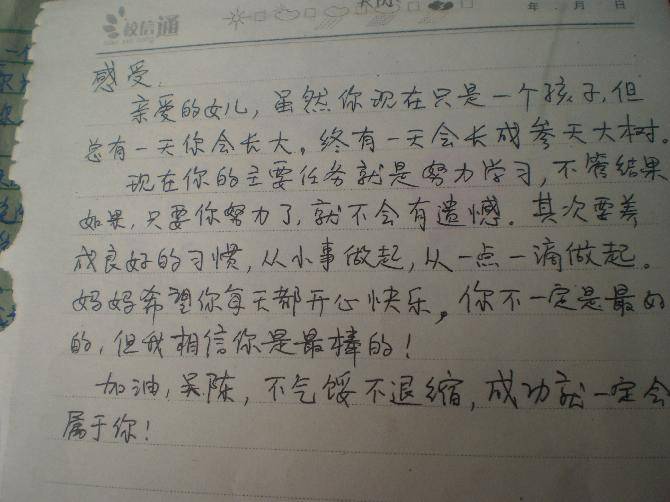 校信通
年 月 日
感受:
亲爱的女儿,虽然你现在只是一个孩子,但
总有一天你会长大。终有一天会长成参天大树。
现在你的主要任务就是努力学习,不管结果
如果,只要你努力了,就不会有遗憾。其次要养
成良好的习惯,从小事做起,从一点一滴做起。
妈妈希望你每天都开心快乐。你不一定是最好
的,但我相信你是最棒的!
加油,吴陈,不气馁不退缩,成功就一定会
属于你!